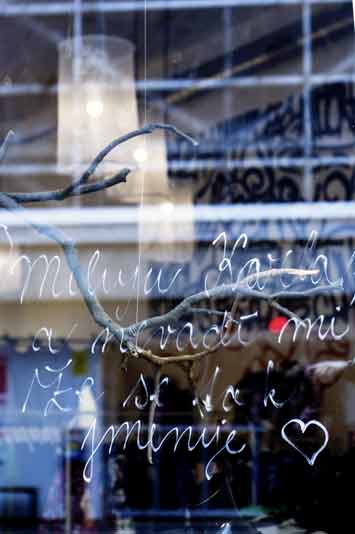 Miluju Karla
a nevadí mi
že se tak
jmenuje ♡